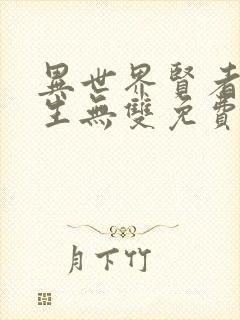 異世界賢者
生無雙免費
月下竹